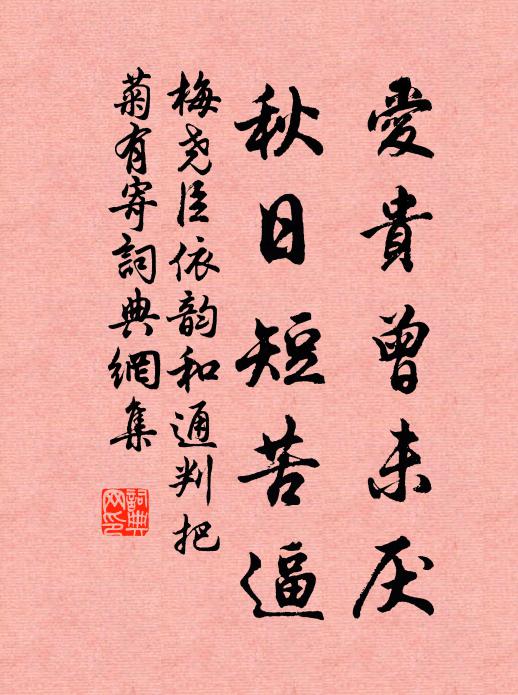 愛貴曾未厌
秋日短苦逼
梅尧臣依韵和通判把
菊有寄詞典網集
詞典网印